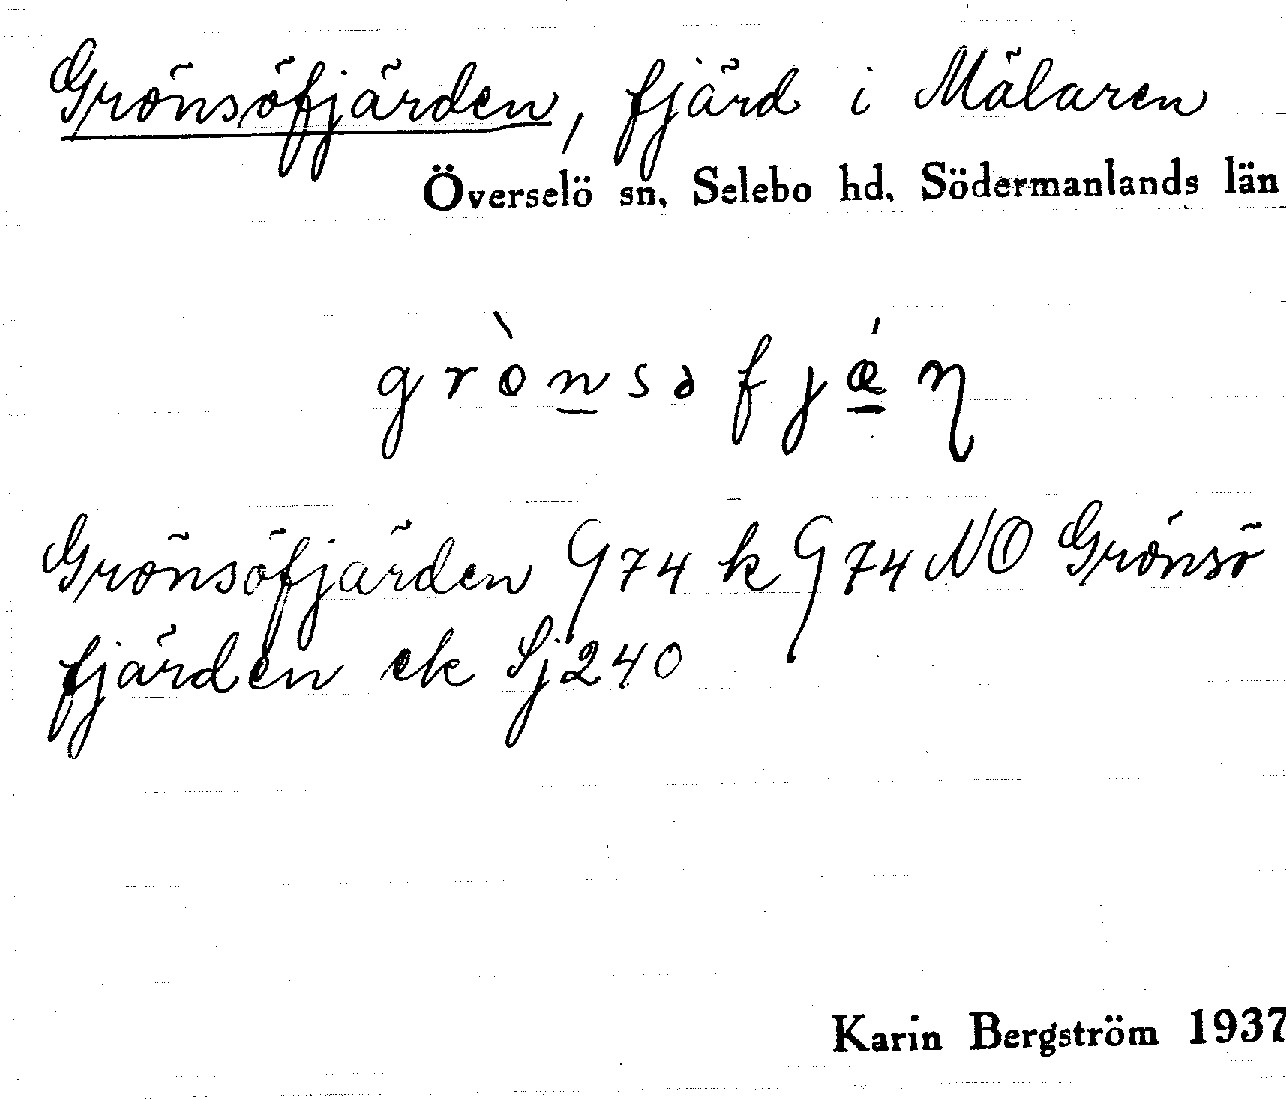 Grönsöfjärden, fjärd i Mälaren
Överselö sn, Selebo hd, Södermanlands län
grònsəfjǽn
Grönsöfjärden G74 k G74 NO Grönsö
fjärden ek Sj240
Karin Bergström 1937